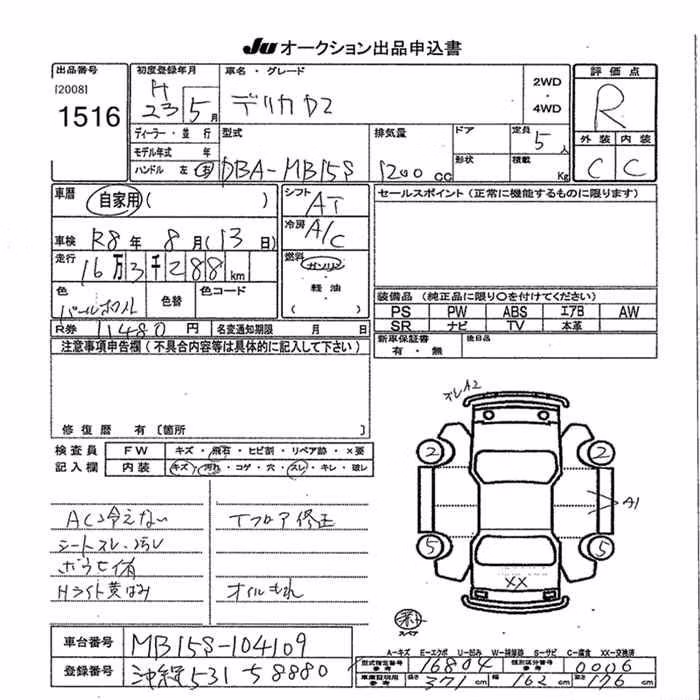 JU オークション出品申込書
出品番号
[2008]
1516
初度登録年月
H
23 5 月
車名・グレード
デリカD2
2WD
・
4WD
評価点
R
外装 内装
C C
ディーラー・並行
モデル年式 年
ハンドル 左 右
型式
DBA-MB15S
排気量
1200 CC
ドア
形状
定員
5 人
積載
Kg
車歴
自家用 ( )
シフト
AT
セールスポイント (正常に機能するものに限ります)
車検 R8 年 8 月 (13 日)
冷房
A/C
走行 16 万 3 千 288 km
燃料
ガソリン
・
軽油
・
( )
色
パールホワイト
色替
色コード
装備品 (純正品に限り〇を付けてください)
PS PW ABS エアB AW
SR ナビ TV 本革
R券 11480 円 名変通知期限 月 日
新車保証書
有・無
後日品
注意事項申告欄 (不具合内容等は具体的に記入して下さい)
修復歴 有 [箇所 ]
検査員 FW キズ・飛石・ヒビ割・リペア跡・×要
記入欄 内装 キズ・汚れ・コゲ・穴・スレ・キレ・破レ
スレA2
2 2
A1
5 5
XX
AC冷えない
Tフロア修正
シートスレ・汚レ
Hライト黄ばみ
オイルもれ
スペア
A-キズ E-エクボ U-凹み W-補修跡 S-サビ C-腐食 XX-交換済
車台番号 MB15S-104109
登録番号 沖縄 531 ち 8880
型式指定番号 参考 16804 類別区分番号 参考 0006
車庫証明用 参考 長さ 371 cm 幅 162 cm 高さ 176 cm